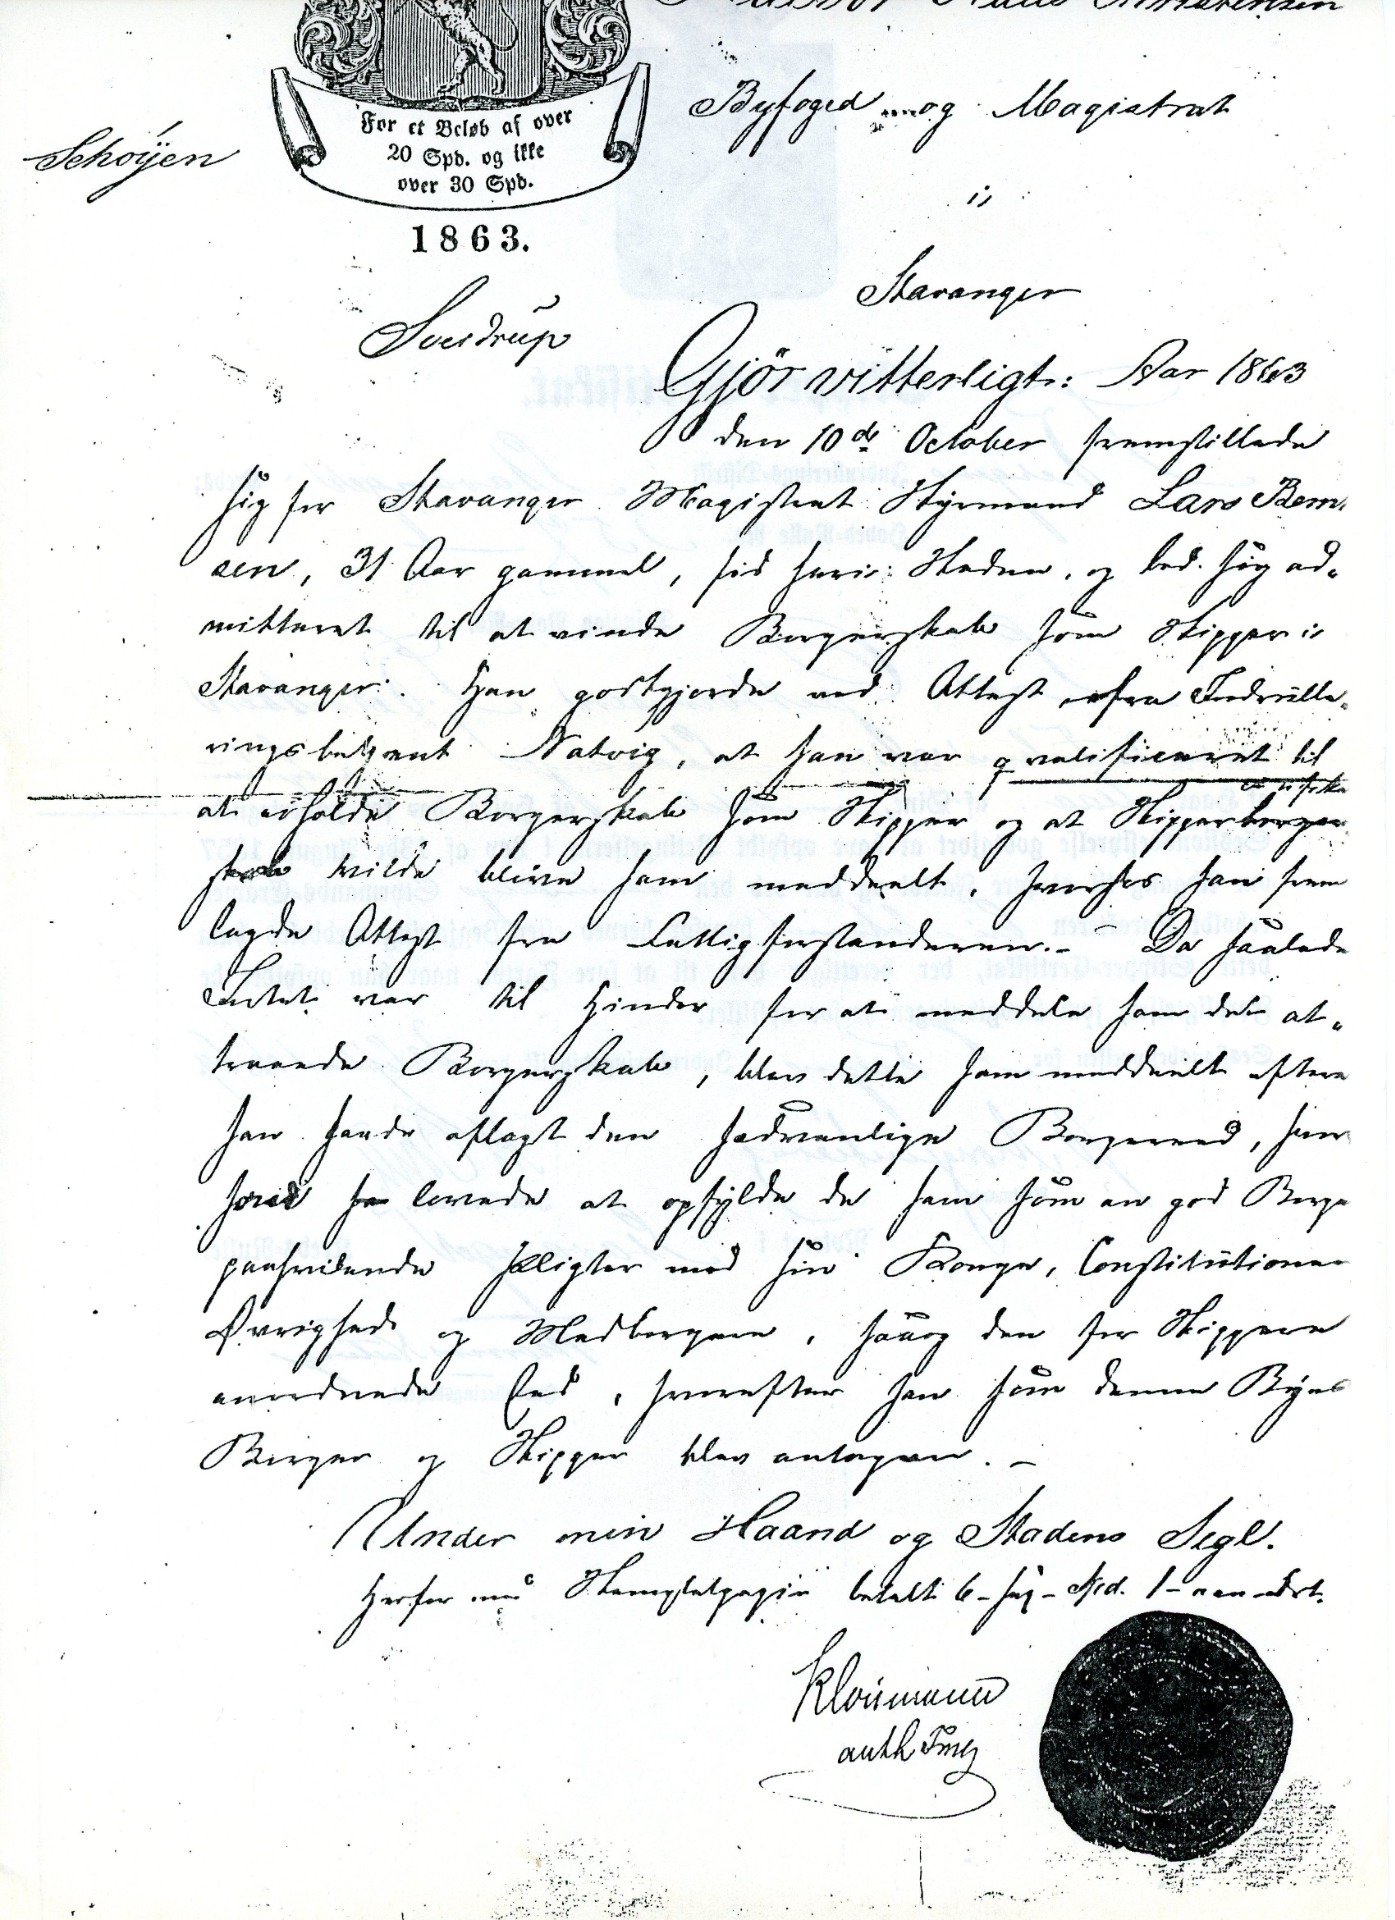 Christensen
Byfoged og Magistrat
For et Beløb af over
20 Spd. og ikke
over 30 Spd.
Schøyen
i
1863.
Stavanger
Sverdrup
Gjör vitterligt: Aar 1863
den 10de October fremstillede
sig for Stavanger Magistrat Styrmand Lars Bern-
sen, 31 Aar gammel, fød her i Staden, og bad sig ad-
mitteret til at vinde Borgerskab som Skipper i
Stavanger. Han godtgjorde ved Attest fra Indrulle-
ringsbetjent Natvig, at han var qvalificeret til
at erholde Borgerskab som Skipper og at Skipperborger
skab vilde blive ham meddeelt, hvorhos han frem
lagde Attest fra Fattigforstanderen. - Da saaledes
Intet var til Hinder for at meddele ham det at-
traaede Borgerskab, blev dette ham meddeelt efterat
han havde aflagt den sædvanlige Borgereed, hvor
ved han lovede at opfylde de ham som en god Borger
paahvilende Pligter mod sin Konge, Constitutionen
Øvrighed og Medborgere, saaog den for Skippere
anordnede Eed, hvorefter han som denne Byes
Borger og Skipper blev antagen. -
Under min Haand og Stadens Segl.
Herfor med Stempletpapir betalt 6 - sex - Spd. 1 - een - Ort.